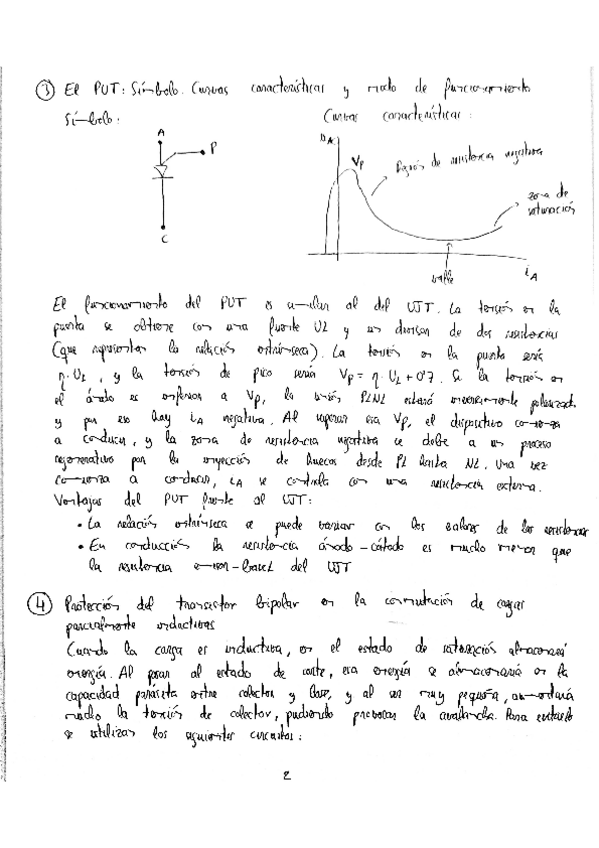 ③ El PUT: Símbolo. Curvas características y modo de funcionamiento
Símbolo:
Curvas características:
A
P
C
υA
Vp
Región de resistencia negativa
zona de saturación
valle
iA
El funcionamiento del PUT es similar al del UJT. La tensión en la
puerta se obtiene con una fuente U2 y un divisor de dos resistencias
(que representan la relación intrínseca). La tensión en la puerta será
η·U2, y la tensión de pico será Vp = η·U2 + 0'7. Si la tensión en
el ánodo es inferior a Vp, la unión P1N1 estará inversamente polarizada
y por eso hay iA negativa. Al superar esa Vp, el dispositivo comienza
a conducir, y la zona de resistencia negativa se debe a un proceso
regenerativo por la inyección de huecos desde P1 hasta N1. Una vez
comienza a conducir, iA se controla con una resistencia externa.
Ventajas del PUT frente al UJT:
• La relación intrínseca se puede variar con los valores de las resistencias
• En conducción la resistencia ánodo-cátodo es mucho menor que
la resistencia emisor-base1 del UJT
④ Protección del transistor bipolar en la conmutación de cargas
parcialmente inductivas
Cuando la carga es inductiva, en el estado de saturación almacenará
energía. Al pasar al estado de corte, esa energía se almacenará en la
capacidad parásita entre colector y base, y al ser muy pequeña, aumentará
mucho la tensión de colector, pudiendo provocar la avalancha. Para evitarlo
se utilizan los siguientes circuitos:
2